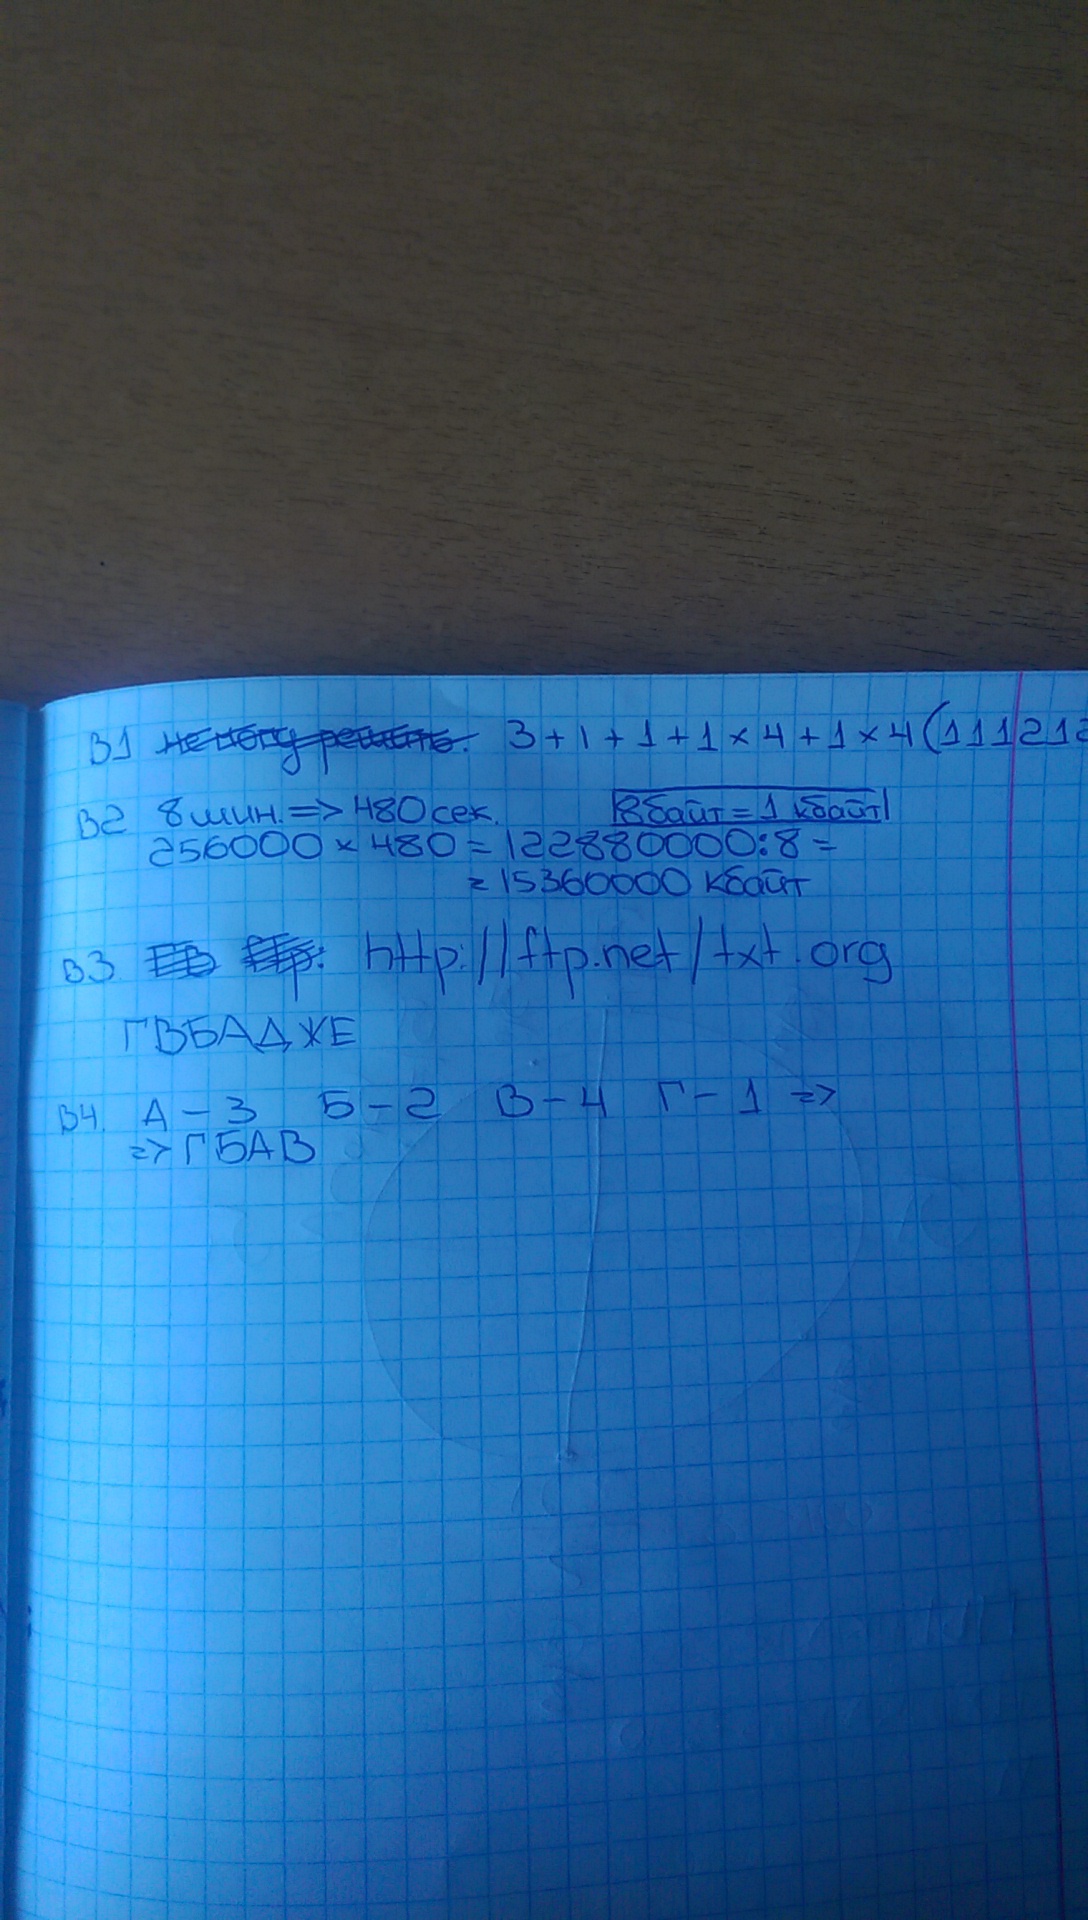 В1 не могу решать. 3+1+1+1×4+1×4(111212
В2 8 мин. => 480 сек. 8 байт = 1 кбайт
256000 × 480 = 122880000:8 =
= 15360000 Кбайт
В3 http://ftp.net/txt.org
ГВБАДЖЕ
В4. А – 3 Б – 2 В – 4 Г – 1 =>
=> ГБАВ